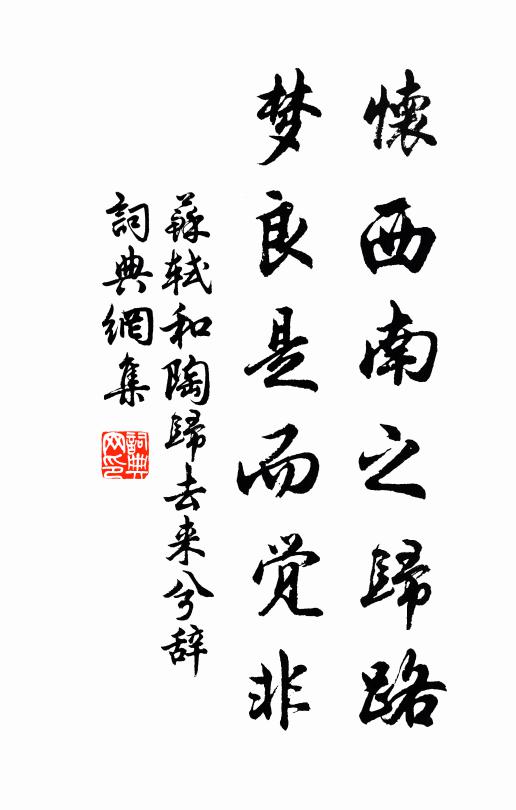 懷西南之歸路
梦良是而觉非
蘇軾和陶歸去来兮辞
詞典網集
詞典网印